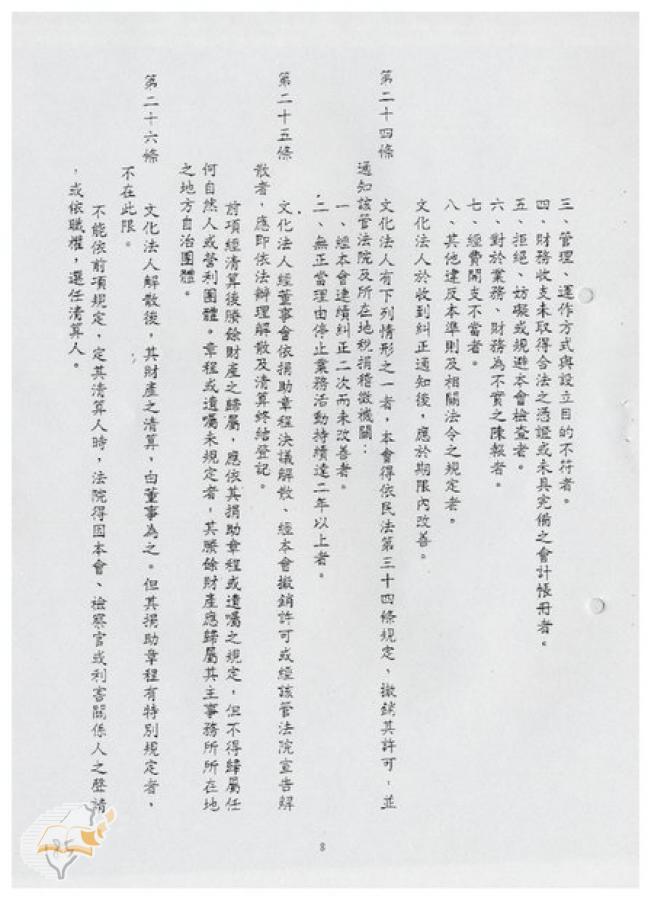 三、管理、運作方式與設立目的不符者。
四、財務收支未取得合法之憑證或未具完備之會計帳冊者。
五、拒絕、妨礙或規避本會檢查者。
六、對於業務、財務為不實之陳報者。
七、經費開支不當者。
八、其他違反本準則及相關法令之規定者。
文化法人於收到糾正通知後，應於期限內改善。
第二十四條　文化法人有下列情形之一者，本會得依民法第三十四條規定，撤銷其許可，並
通知該管法院及所在地稅捐稽徵機關：
一、經本會連續糾正二次而未改善者。
二、無正當理由停止業務活動持續達二年以上者。
第二十五條　文化法人經董事會依捐助章程決議解散、經本會撤銷許可或經該管法院宣告解
散者，應即依法辦理解散及清算終結登記。
前項經清算後賸餘財產之歸屬，應依其捐助章程或遺囑之規定，但不得歸屬任
何自然人或營利團體。章程或遺囑未規定者，其賸餘財產應歸屬其主事務所所在地
之地方自治團體。
第二十六條　文化法人解散後，其財產之清算，由董事為之。但其捐助章程有特別規定者，
不在此限。
不能依前項規定，定其清算人時，法院得因本會、檢察官或利害關係人之聲請
，或依職權，選任清算人。
8
185